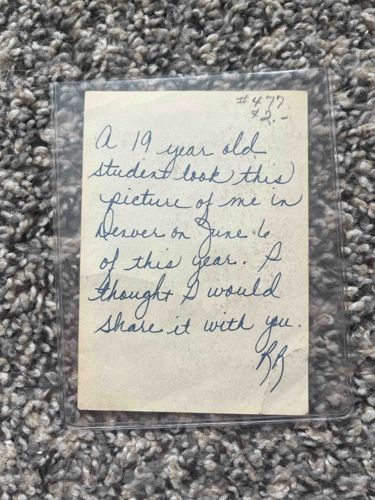 #477
$2.-
A 19 year old
student took this
picture of me in
Denver on June 6
of this year. I
thought I would
share it with you.
RR